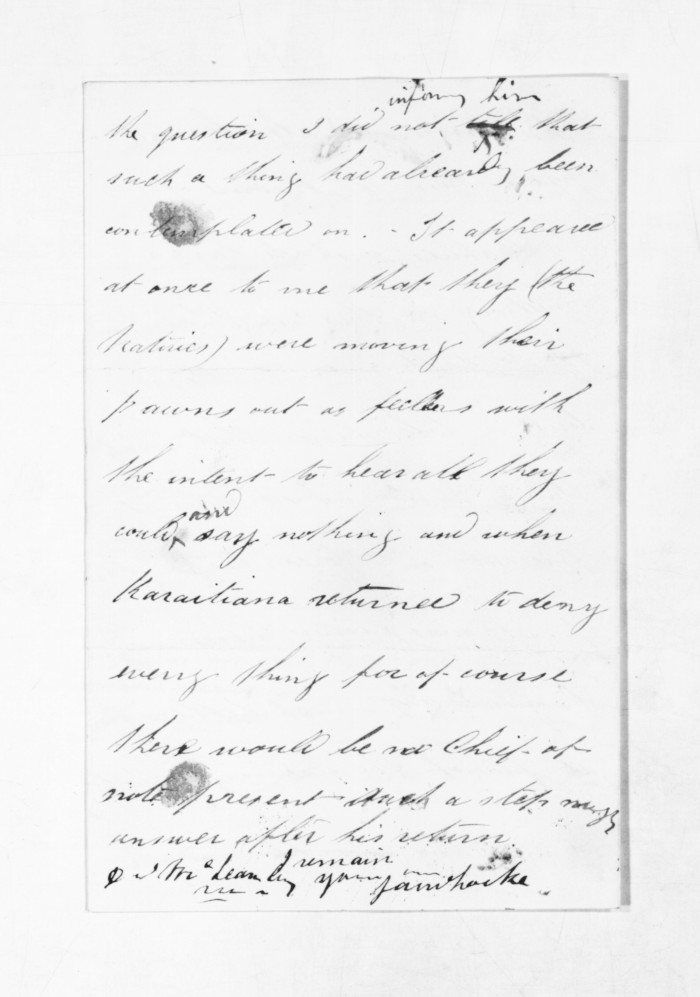 inform him
the question I did not tell that
such a thing had already been
contemplated on. - It appeared
at once to me that they (the
Natives) were moving their
pawns out as feelers with
the intent to hear all they
could, and say nothing and when
Karaitiana returned to deny
every thing for of course
there would be no Chief of
note present such a step may
answer after his return
I remain
McLean